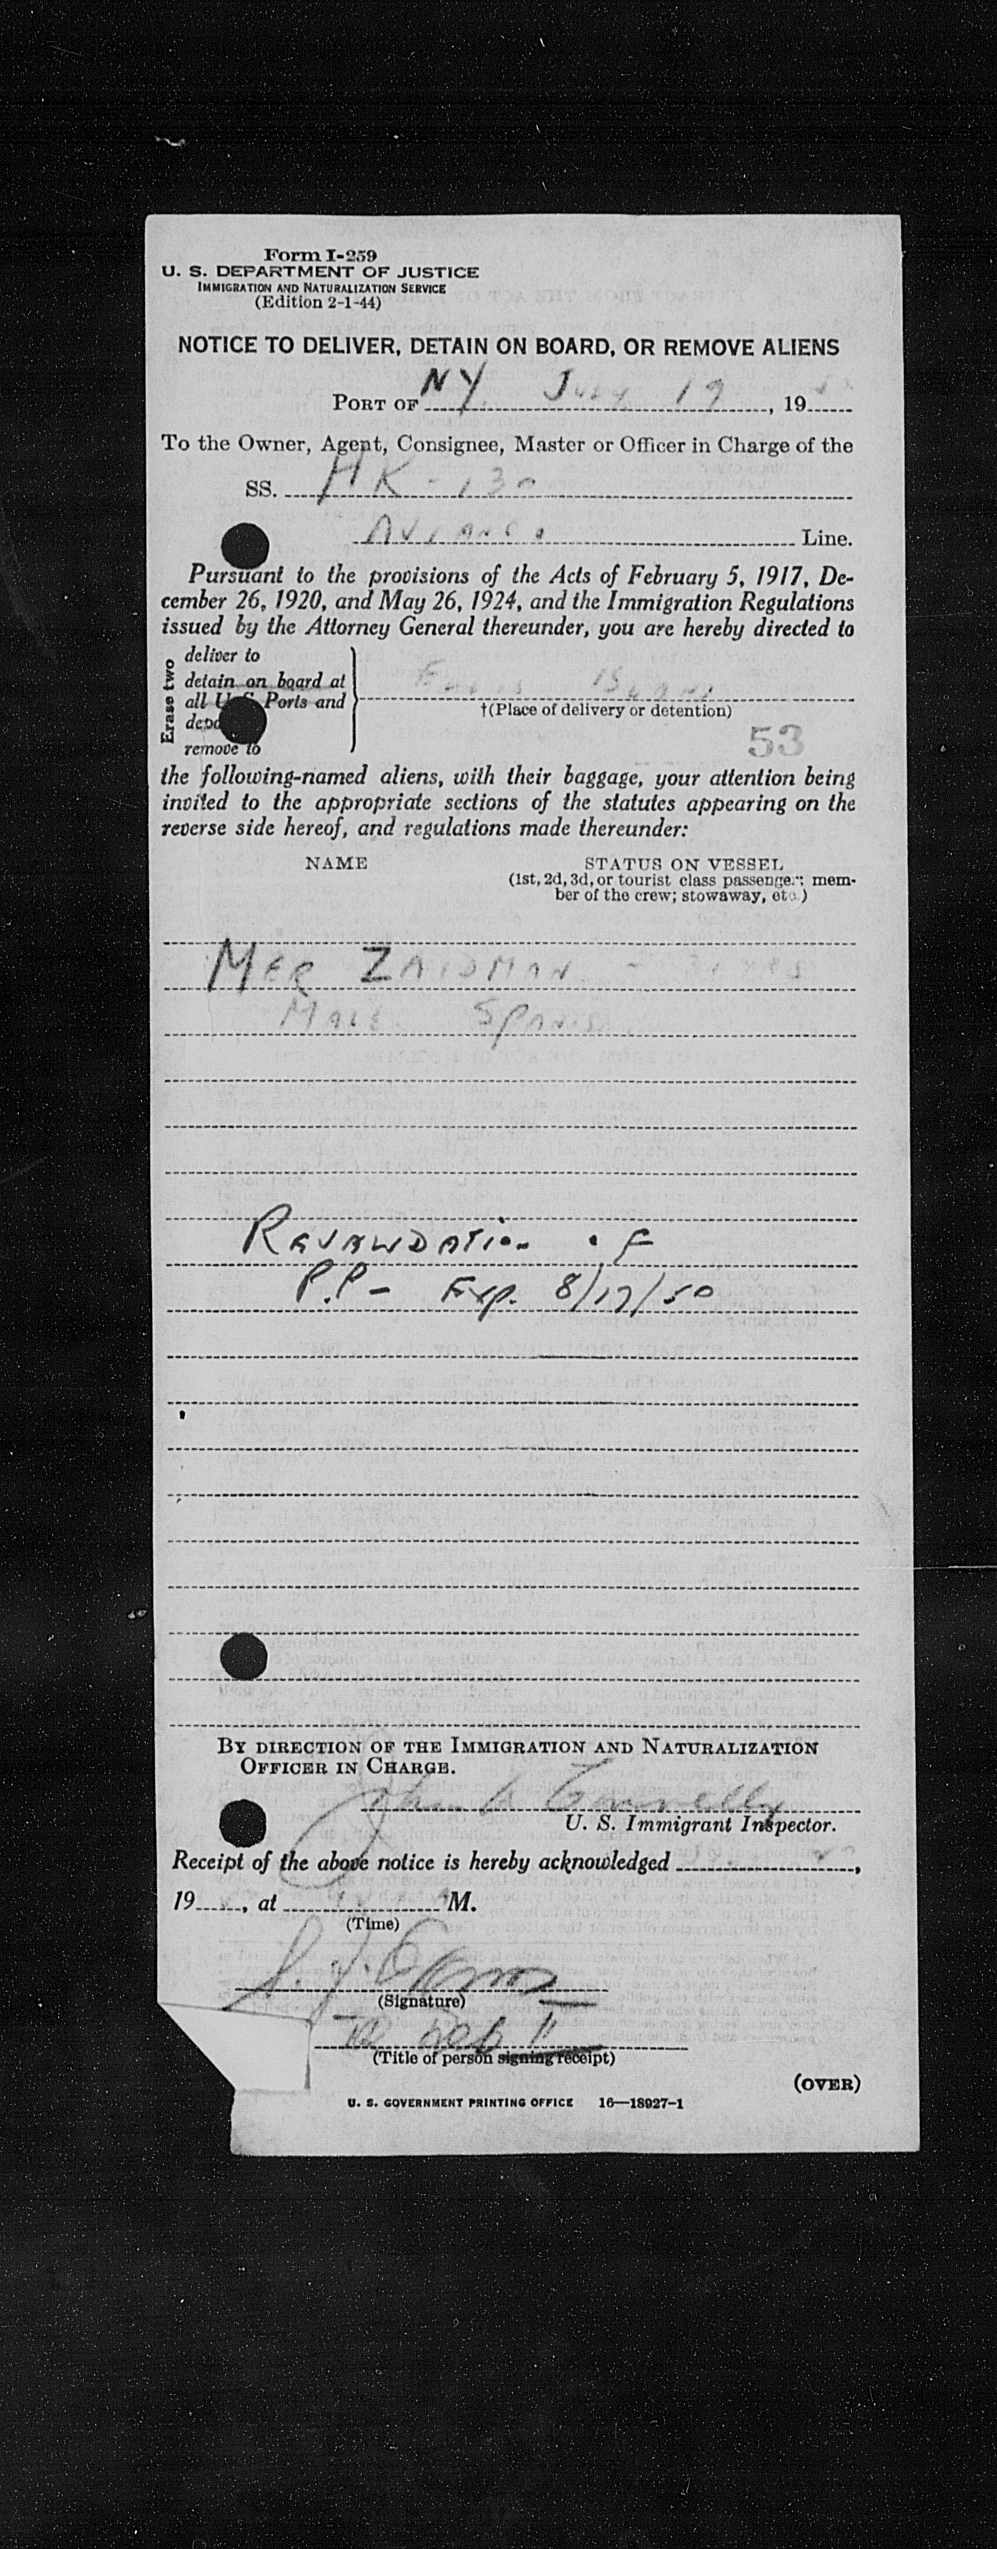 Form I-259
U. S. DEPARTMENT OF JUSTICE
IMMIGRATION AND NATURALIZATION SERVICE
(Edition 2-1-44)
NOTICE TO DELIVER, DETAIN ON BOARD, OR REMOVE ALIENS
PORT OF NY July 19, 19
To the Owner, Agent, Consignee, Master or Officer in Charge of the
SS. HK-130
AVIANCA Line.
Pursuant to the provisions of the Acts of February 5, 1917, De-
cember 26, 1920, and May 26, 1924, and the Immigration Regulations
issued by the Attorney General thereunder, you are hereby directed to
Erase two
deliver to
detain on board at
all U. S. Ports and
remove to
ELLIS ISLAND
†(Place of delivery or detention)
53
the following-named aliens, with their baggage, your attention being
invited to the appropriate sections of the statutes appearing on the
reverse side hereof, and regulations made thereunder:
NAME STATUS ON VESSEL
(1st, 2d, 3d, or tourist class passenger; mem-
ber of the crew; stowaway, etc.)
MER ZAIDMAN -
MALE SPANISH
REVALIDATION OF
P.P - Exp. 8/17/50
BY DIRECTION OF THE IMMIGRATION AND NATURALIZATION
OFFICER IN CHARGE.
John Connelly
U. S. Immigrant Inspector.
Receipt of the above notice is hereby acknowledged ,
19 , at M.
(Time)
(Signature)
(Title of person signing receipt)
(OVER)
U. S. GOVERNMENT PRINTING OFFICE 16—18927-1